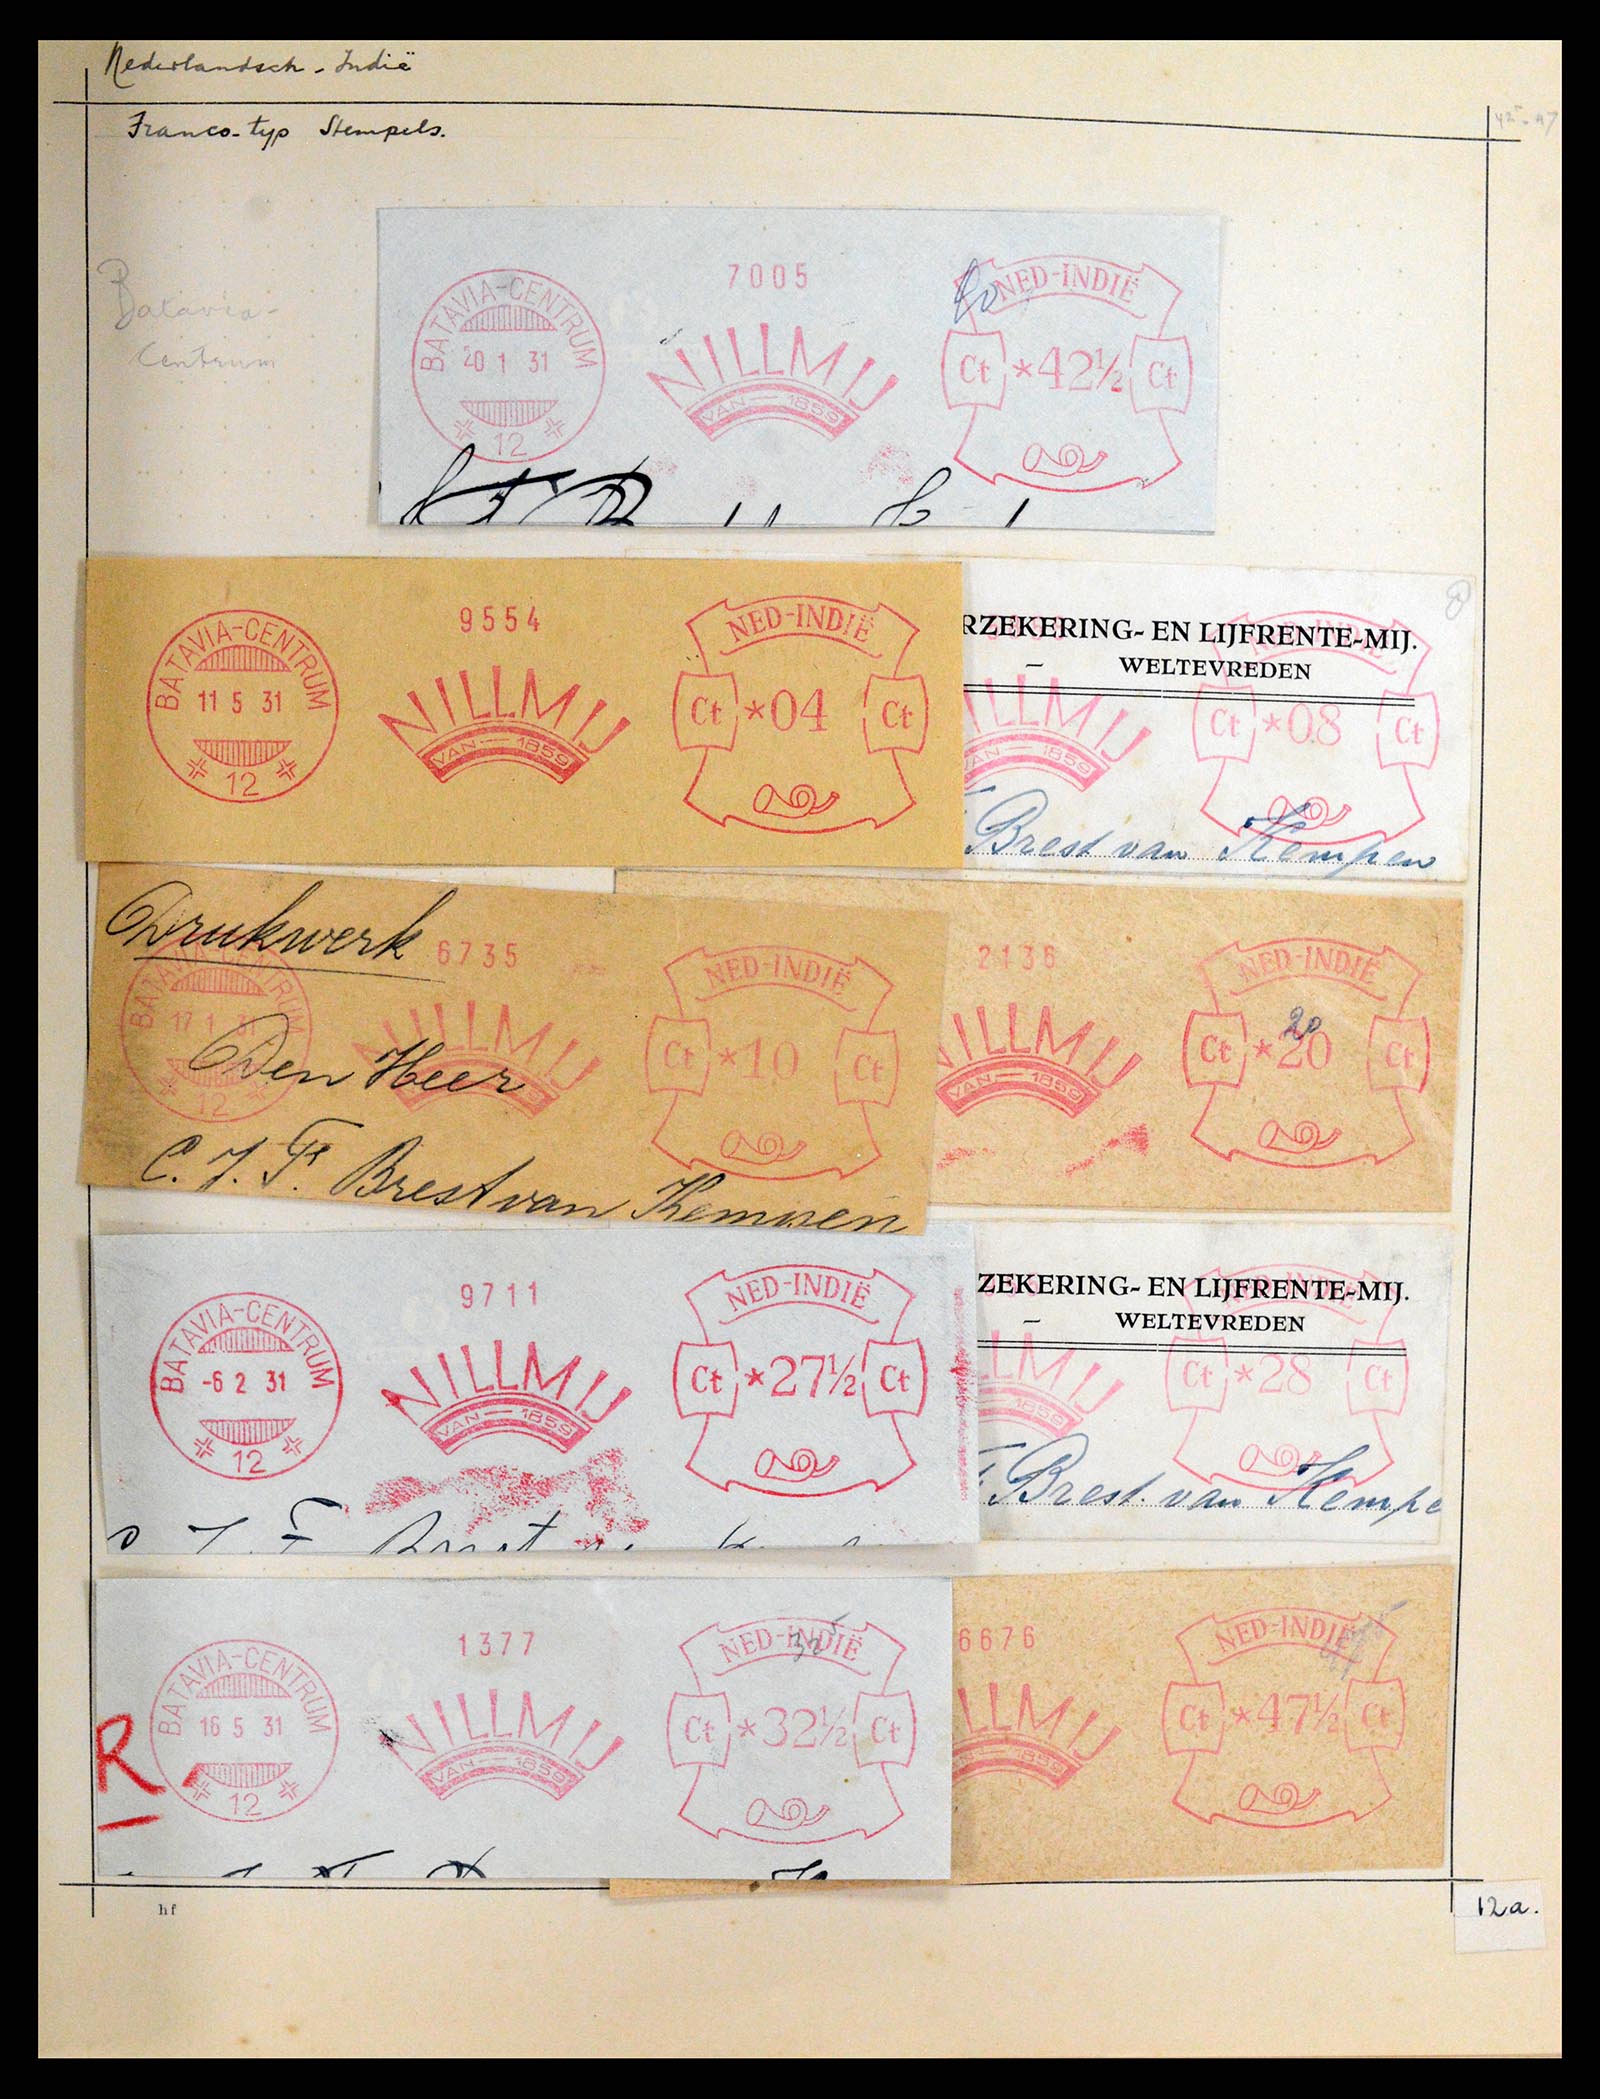 Nederlandsch-Indië
Franco-typ Stempels.
Batavia-
Centrum
7005
BATAVIA-CENTRUM
20 1 31
12
NILLMIJ
VAN — 1859
NED-INDIË
Ct *42½ Ct
9554
BATAVIA-CENTRUM
11 5 31
12
NILLMIJ
VAN — 1859
NED-INDIË
Ct *04 Ct
8
RZEKERING- EN LIJFRENTE-MIJ.
– WELTEVREDEN
LLMIJ
VAN — 1859
NED-INDIË
Ct *08 Ct
Brest van Kempen
Drukwerk
6735
BATAVIA-CENTRUM
17 1 31
12
NILLMIJ
VAN — 1859
NED-INDIË
Ct *10 Ct
Den Heer
C. J. F. Brest van Kempen
2136
NILLMIJ
VAN — 1859
NED-INDIË
20
Ct *20 Ct
9711
BATAVIA-CENTRUM
-6 2 31
12
NILLMIJ
VAN — 1859
NED-INDIË
Ct *27½ Ct
ZEKERING- EN LIJFRENTE-MIJ.
– WELTEVREDEN
LMIJ
1859
Ct *28 Ct
F. Brest van Kempe
R
1377
BATAVIA-CENTRUM
16 5 31
12
NILLMIJ
VAN — 1859
NED-INDIË
32⁵
Ct *32½ Ct
6676
LLMIJ
1859
NED-INDIË
Ct *47½ Ct
hf
12a.